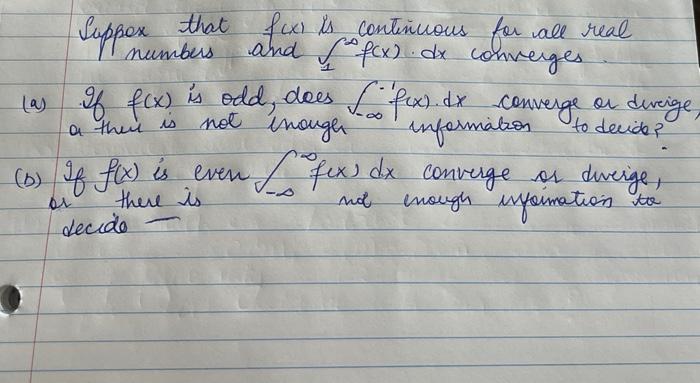 Suppox that f(x) is continuous for all real
numbers and ∫₁^∞ f(x)·dx converges.
(a) If f(x) is odd, does ∫₋∞^-1 f(x).dx converge or diverige,
a ther is not inough information to decide?
(b) If f(x) is even ∫₋∞^∞ f(x) dx converge or diverge,
or there is not enough information to
decido —